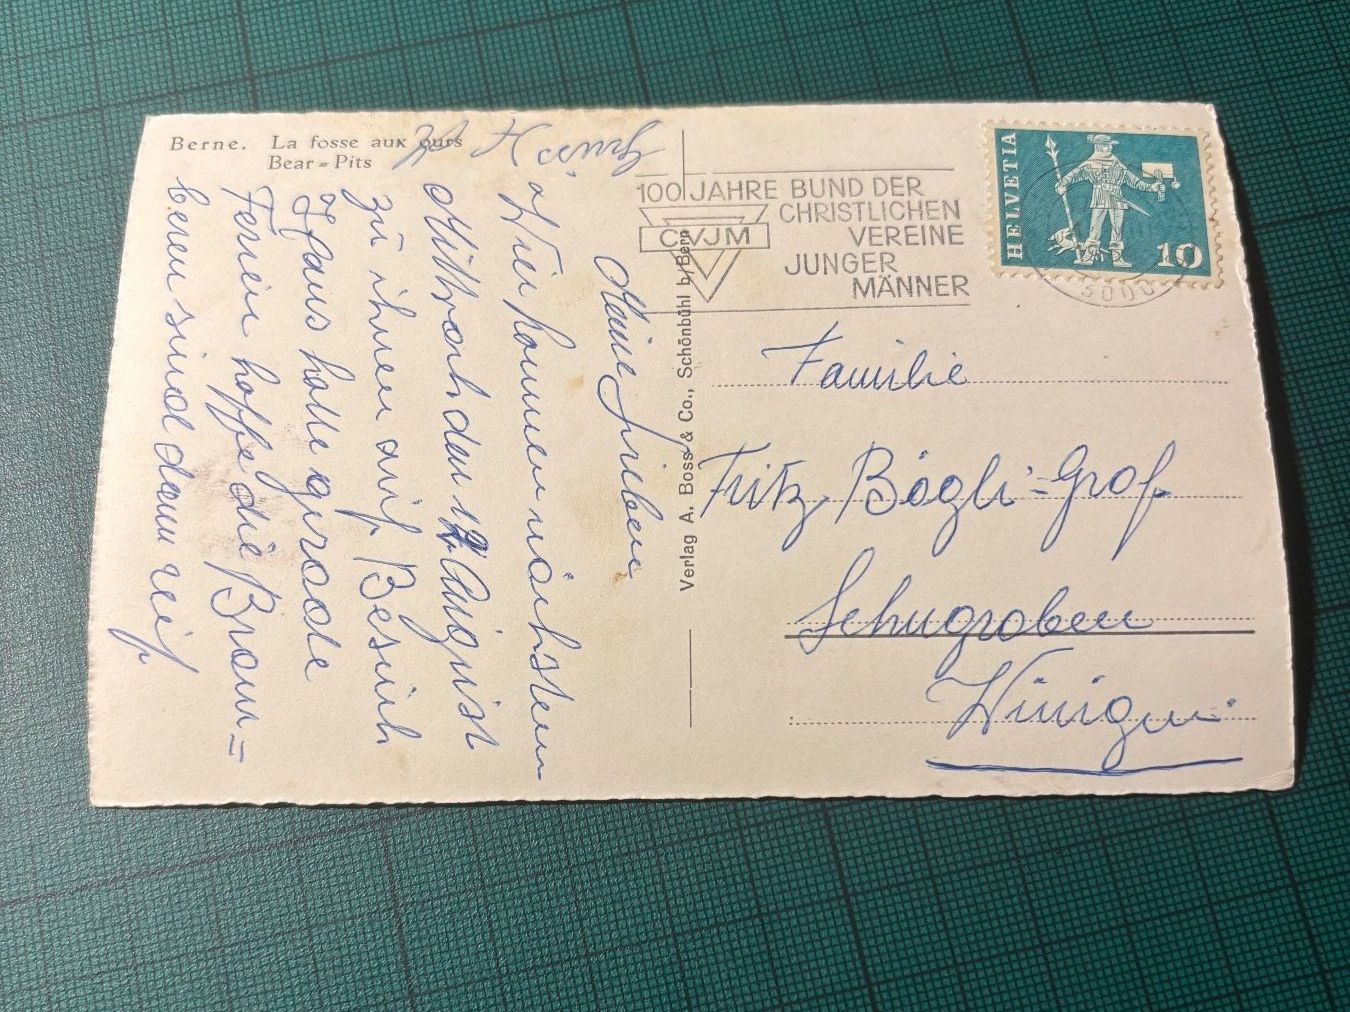 Berne. La fosse aux ours
Bear-Pits
Meine Lieben
Wir kommen nächsten
Mittwoch den 12 August
zu ihnen auf Besuch
Hans hatte grade
Ferien hoffe die Brom=
beren sind dann reif
100 JAHRE BUND DER
CHRISTLICHEN
VEREINE
JUNGER
MÄNNER
CVJM
HELVETIA
10
3000
Verlag A. Boss & Co., Schönbühl b/Bern
Familie
Fritz Bögli=Grof
Schugroben
Winigen